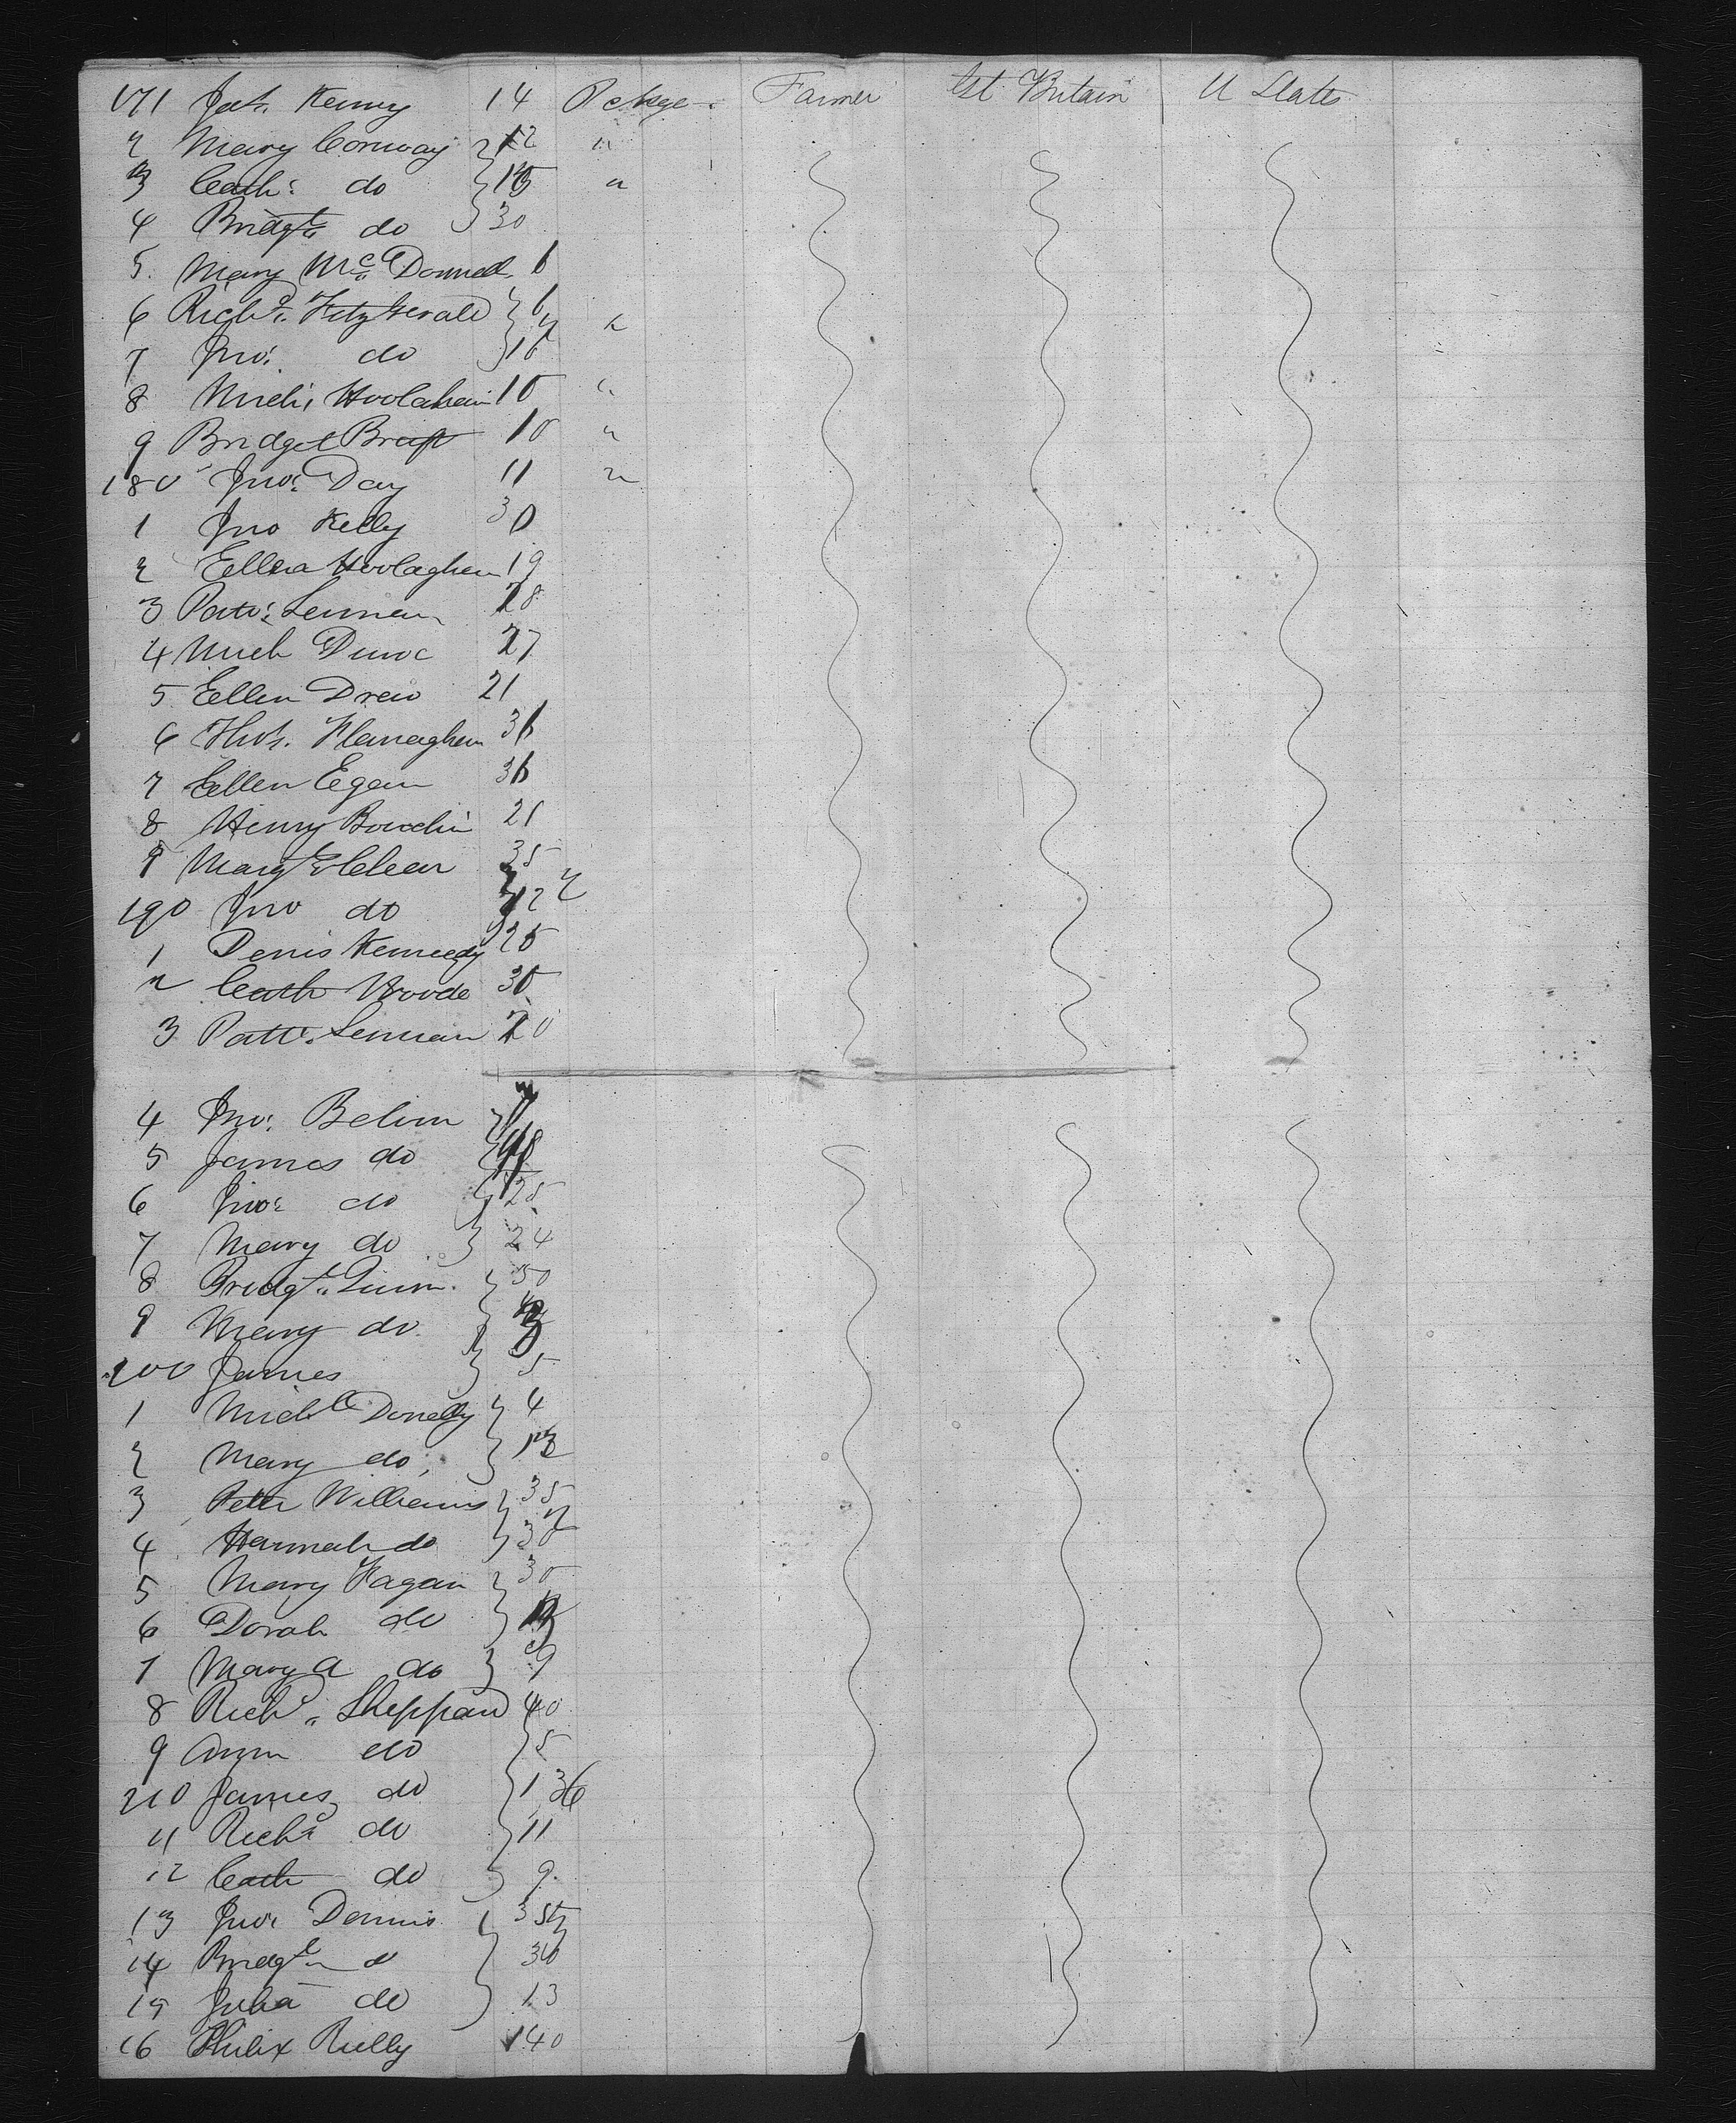 171 Jas. Kenny 14 Pckge Farmer Gt Britain U States
2 Mary Conway 12 "
3 Cath: do 15 "
4 Bridgt. do 30
5. Mary McDonnell 6
6 Richd. FitzGerald 6 "
7 Jno: do
8 Mich: Hoolahan 10 "
9 Bridget 10 "
180 Jno: Day 11 "
1 Jno Kelly 30
2 Ellen Hoolaghen 19
3 Patk: Lennen 28
4 Mich 27
5 Ellen Drew 21
6 Thos. Flanaghen 36
7 Ellen Egan 36
8 Henry 21
9 Margt 35
190 Jno do 12
1 Denis Kennedy 25
2 Cath Woode 30
3 Patk. Lennan 20
4 Jno: Belim
5 James do
6 Jno: do 25
7 Mary do 24
8 Bridgt. Quinn. 50
9 Mary do.
200 James 5
1 Michl Donelly 4
2 Mary do,
3 Peter Williams 35
4 Hannah do 30
5 Mary Fagan 30
6 Dorah do
7 Mary A do 9
8 Richd. Sheppard 40
9 Ann do
210 James do
11 Richd do 11
12 Cath do 9.
13 Jno: Dennis
14 Bridgt
15 Julia do 13
16 Reilly 40